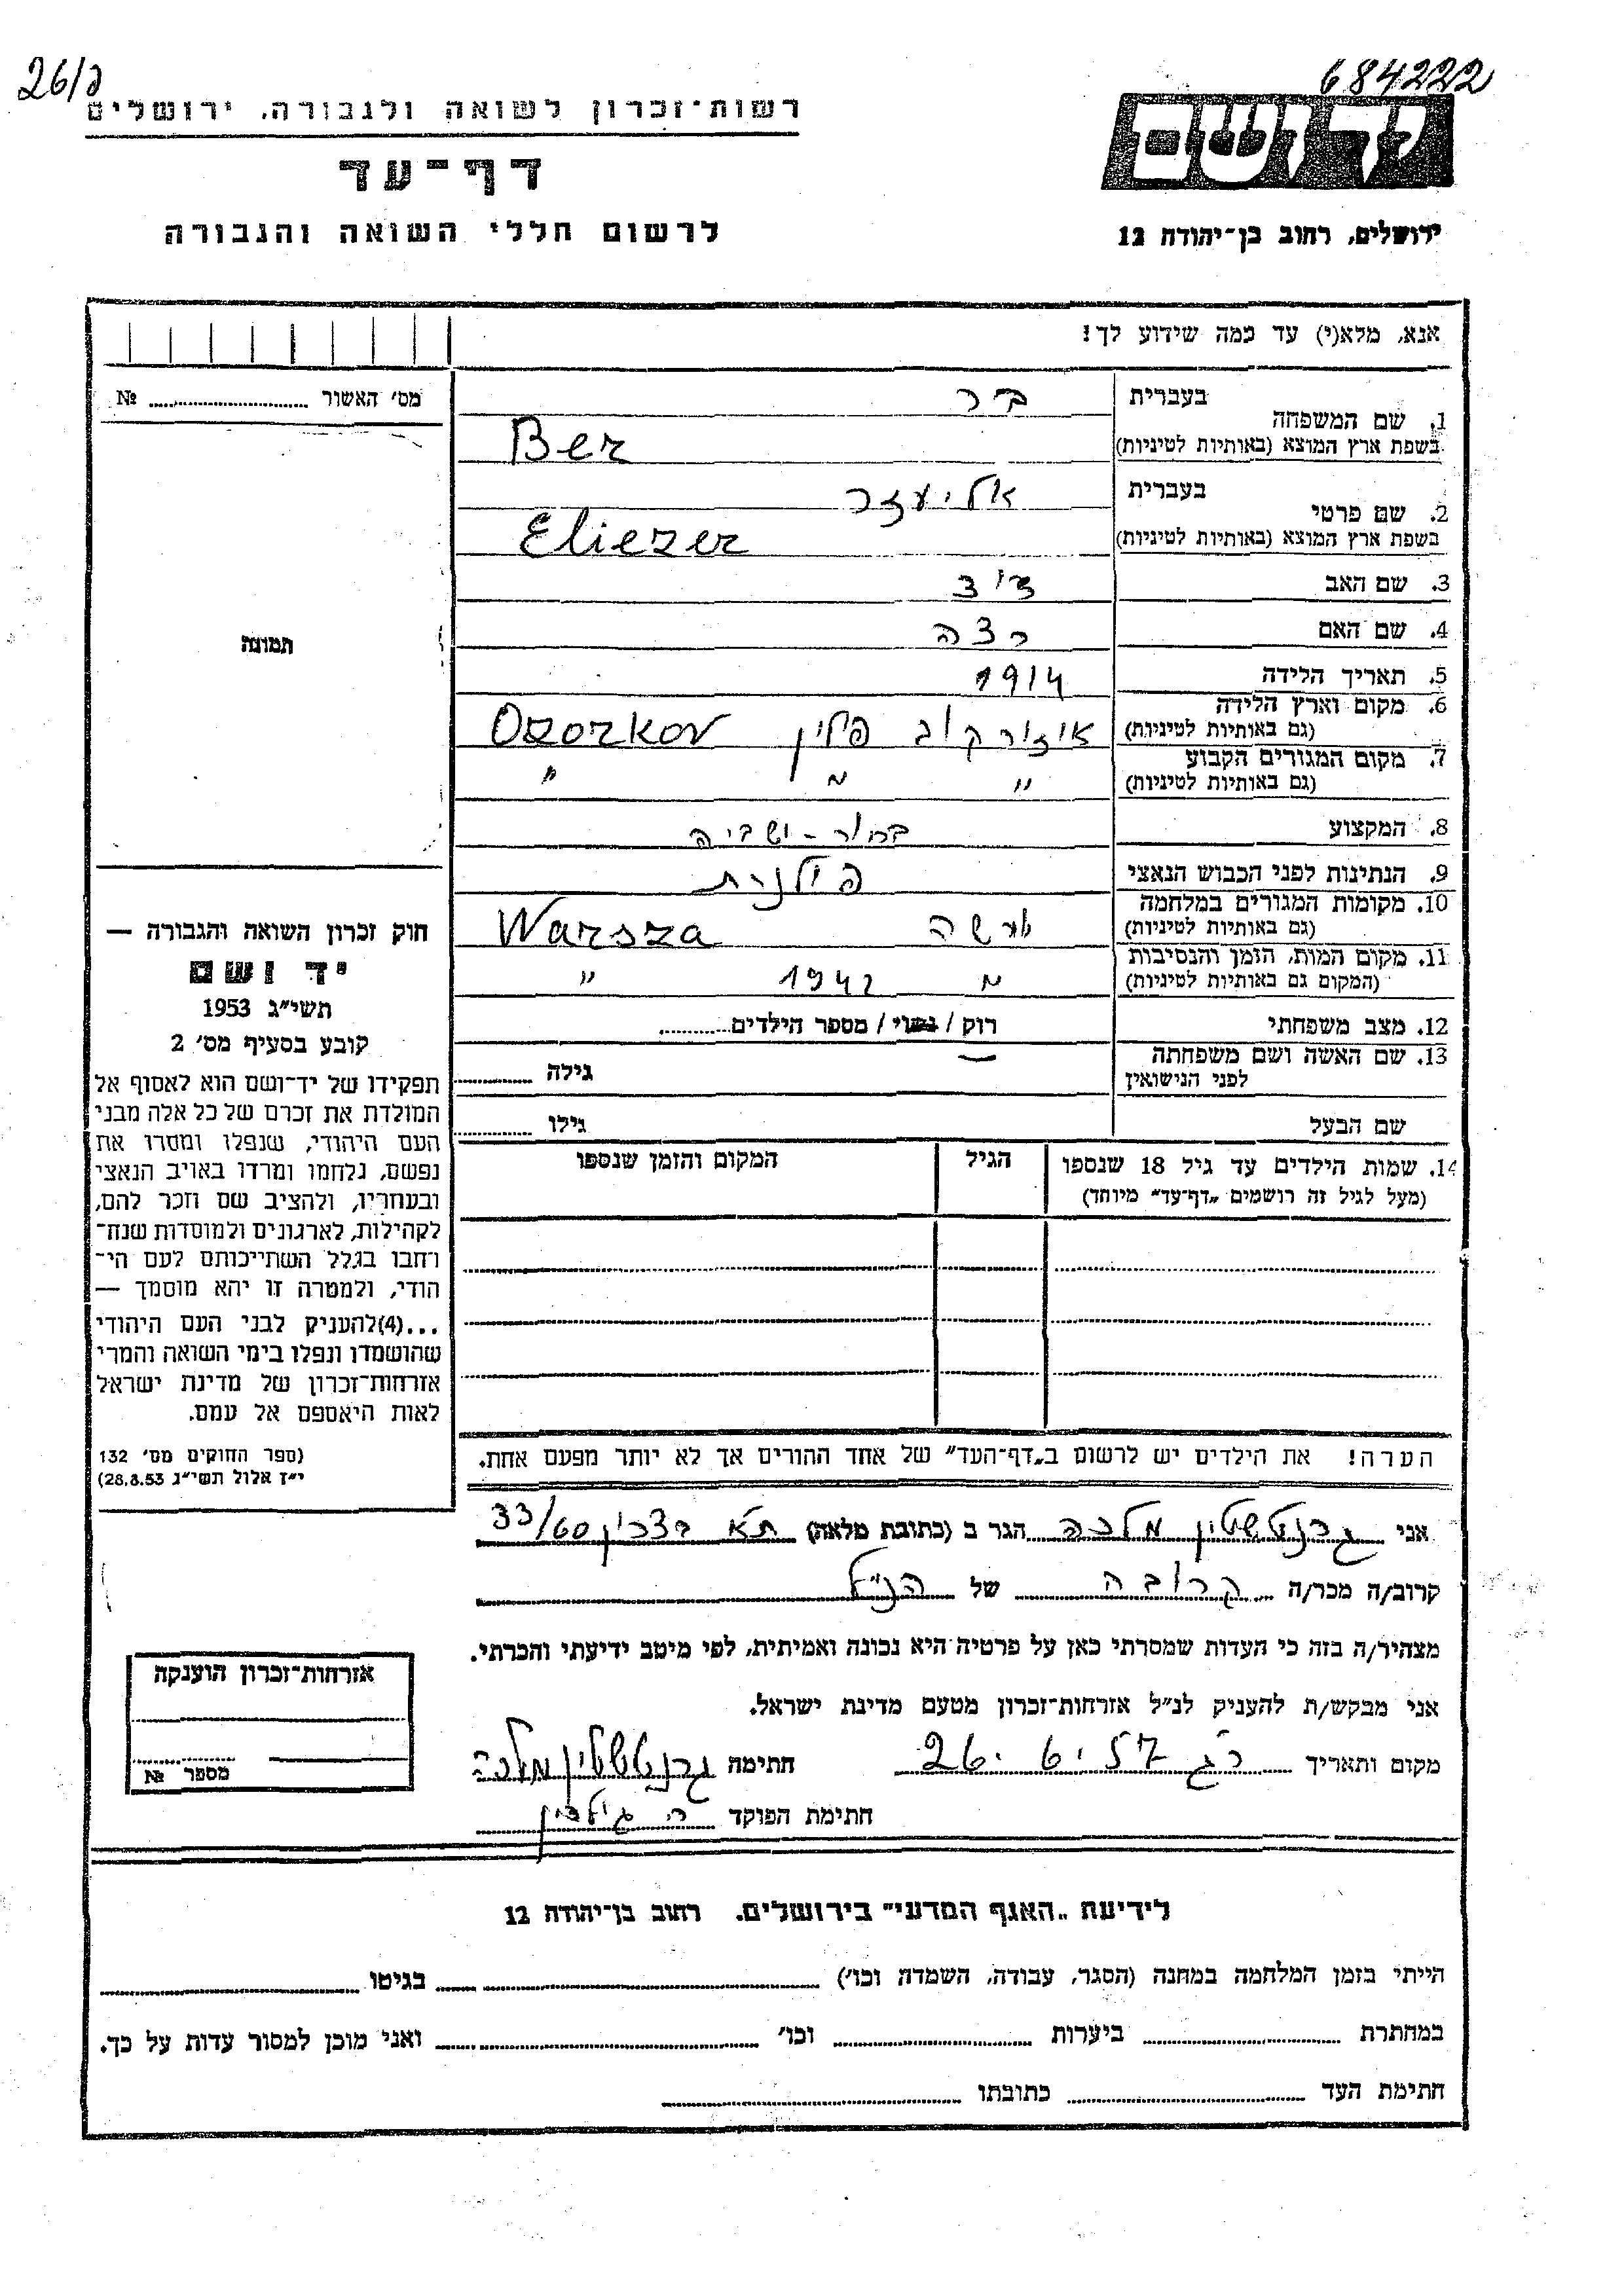 26/ג
684222
רשות־זכרון לשואה ולגבורה, ירושלים
דף־עד
לרשום חללי השואה והגבורה
יד ושם
ירושלים, רחוב בן־יהודה 12
אנא, מלא(י) עד כמה שידוע לך!
מס׳ האשור № 
1. שם המשפחה
בעברית בר
בשפת ארץ המוצא (באותיות לטיניות) Ber
2. שם פרטי
בעברית אליעזר
בשפת ארץ המוצא (באותיות לטיניות) Eliezer
3. שם האב
4. שם האם
5. תאריך הלידה 1914
6. מקום וארץ הלידה
(גם באותיות לטיניות) איזורקוב פולין Ozorkov
7. מקום המגורים הקבוע
(גם באותיות לטיניות) " " "
8. המקצוע בחור-ישיבה
9. הנתינות לפני הכבוש הנאצי פולנית
10. מקומות המגורים במלחמה
(גם באותיות לטיניות) ורשה Warsza
11. מקום המות, הזמן והנסיבות
(המקום גם באותיות לטיניות) " 1942 "
12. מצב משפחתי רוק / נשוי / מספר הילדים
13. שם האשה ושם משפחתה
לפני הנישואין — גילה
שם הבעל גילו
14. שמות הילדים עד גיל 18 שנספו
(מעל לגיל זה רושמים „דף־עד" מיוחד)
הגיל
המקום והזמן שנספו
הערה! את הילדים יש לרשום ב„דף־העד" של אחד ההורים אך לא יותר מפעם אחת.
תמונה
חוק זכרון השואה והגבורה —
יד ושם
תשי״ג 1953
קובע בסעיף מס׳ 2
תפקידו של יד־ושם הוא לאסוף אל
המולדת את זכרם של כל אלה מבני
העם היהודי, שנפלו ומסרו את
נפשם, נלחמו ומרדו באויב הנאצי
ובעוזריו, ולהציב שם וזכר להם,
לקהילות, לארגונים ולמוסדות שנח־
רבו בגלל השתייכותם לעם הי־
הודי, ולמטרה זו יהא מוסמך —
...(4) להעניק לבני העם היהודי
שהושמדו ונפלו בימי השואה והמרי
אזרחות־זכרון של מדינת ישראל
לאות היאספם אל עמם.
(ספר החוקים מס׳ 132
י״ז אלול תשי״ג 28.8.53)
אני גרנטשטין מלכה הגר ב (כתובת מלאה) ת״א 33/60
קרוב/ה מכר/ה קרובה של הנ״ל
מצהיר/ה בזה כי העדות שמסרתי כאן על פרטיה היא נכונה ואמיתית, לפי מיטב ידיעתי והכרתי.
אני מבקש/ת להעניק לנ״ל אזרחות־זכרון מטעם מדינת ישראל.
מקום ותאריך רג 26.6.57 חתימה גרנטשטין מלכה
חתימת הפוקד
אזרחות־זכרון הוענקה
מספר №
לידיעת „האגף המדעי" בירושלים, רחוב בן־יהודה 12
הייתי בזמן המלחמה במחנה (הסגר, עבודה, השמדה וכו׳) בגיטו
במחתרת ביערות וכו׳ ואני מוכן למסור עדות על כך.
חתימת העד כתובתו